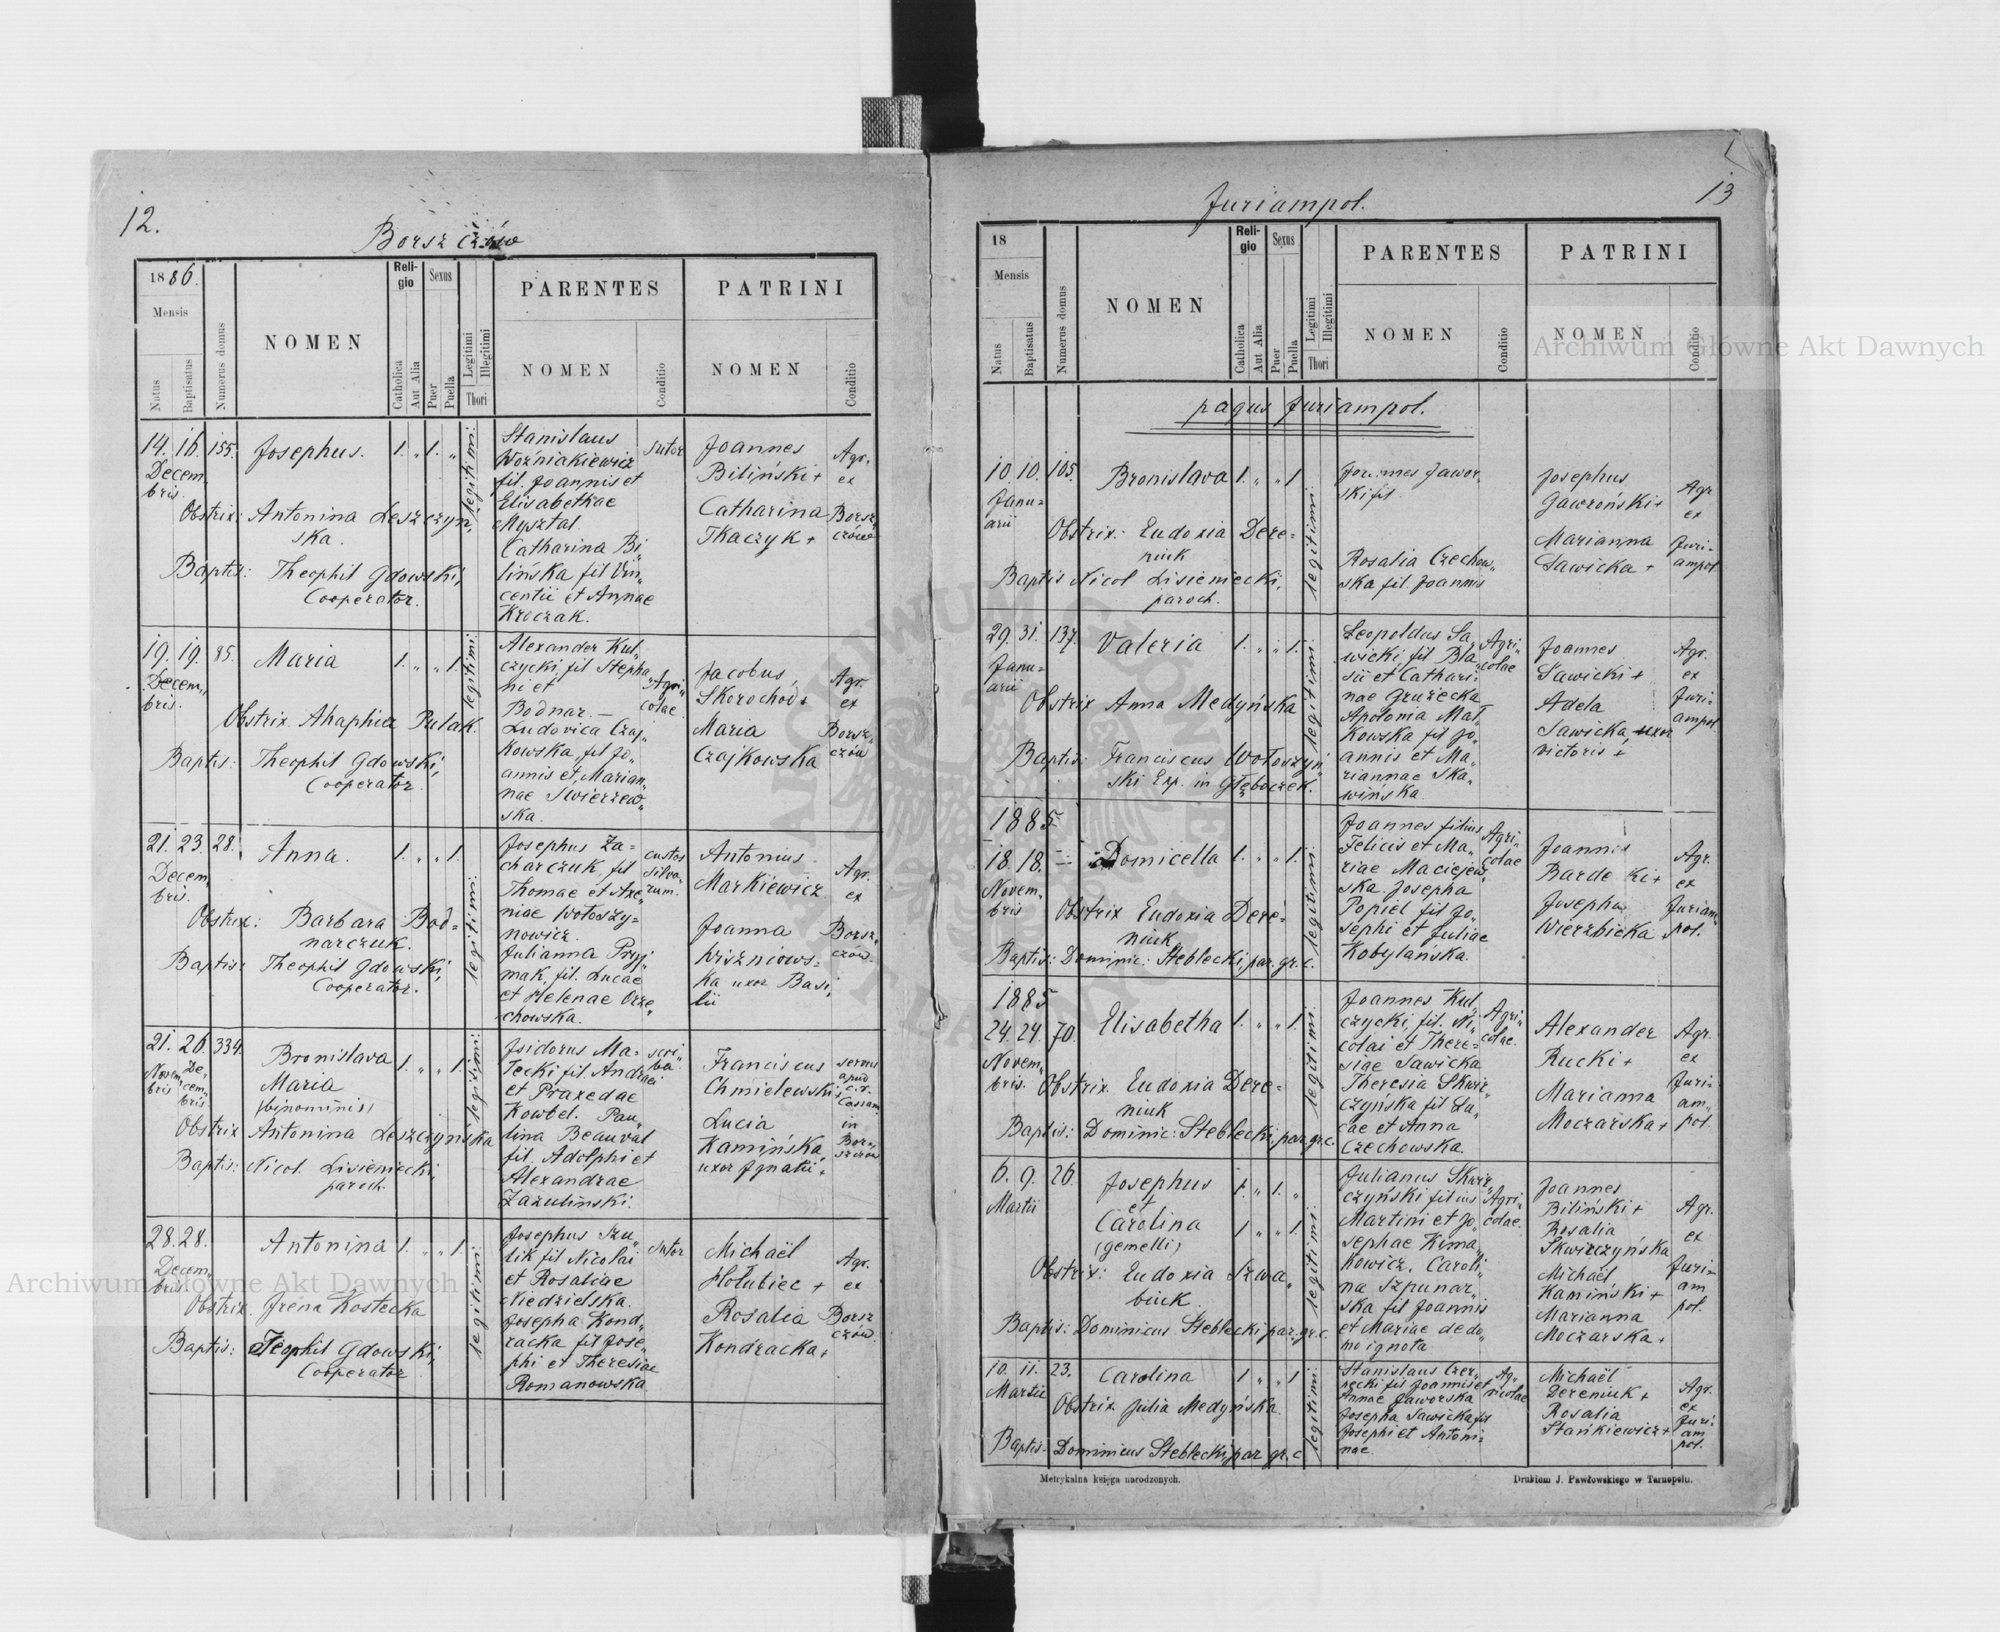 12.
Borszczów
1886.
Mensis
Natus
Baptisatus
Numerus domus
NOMEN
Religio
Catholica
Aut Alia
Sexus
Puer
Puella
Legitimi
Illegitimi
Thori
PARENTES
NOMEN
Conditio
PATRINI
NOMEN
Conditio
14. 16. 155. Josephus. 1. „ 1. „
Decem
bris.
Obstrix: Antonina Leszczyn„
ska.
Baptis: Theophil Gdowski,
Cooperator.
legitimi.
Stanislaus
Woźniakiewicz
fil. Joannis et
Elisabethae
Mysztal.
Catharina Bi„
lińska fil Vin„
centii et Annae
Kroczak.
Sutor
Joannes
Biliński +
Catharina
Tkaczyk +
Agr.
ex
Borsz„
czów
19. 19. 85. Maria 1. „ „ 1.
Decem„
bris.
Obstrix. Ahaphia Pulak.
Baptis: Theophil Gdowski,
Cooperator
legitimi.
Alexander Kul„
czycki, fil Stepha„
ni et
Bodnar. —
Ludovica Czaj„
kowska, fil Jo„
annis et Marian„
nae Swierzew„
ska.
Agri„
colae.
Jacobus
Skorochod +
Maria
Czajkowska
Agr.
ex
Borsz„
czów
21. 23. 28. Anna. 1. „ „ 1.
Decem„
bris.
Obstrix: Barbara Bod=
narczuk.
Baptis: Theophil Gdowski,
Cooperator.
legitimi.
Josephus Za=
charczuk, fil
Thomae et Axe„
niae Wołoszy=
nowicz.
Julianna Pryj„
mak, fil. Lucae
et Helenae Orze„
chowska.
custos
silva„
rum.
Antonius
Markiewicz
Joanna
Wiszniows=
ka uxor Basi„
lii
Agr.
ex
Borsz„
czów.
21. 26. 334. Bronislava 1. „ „ 1.
Novem„
bris
De„
cem„
bris
Maria
(binominis)
Obstrix Antonina Leszczyńska
Baptis: Nicol. Lisieniecki,
paroch.
legitimi.
Isidorus Ma=
Tecki fil. Andreae
et Praxedae
Kowbel. Pau„
lina Beauval
fil. Adolphi et
Alexandrae
Zazulinski.
scri„
ba
Franciscus
Chmielewski
Lucia
Kamińska,
uxor Ignatii +
servus
apud
c. r.
Cassam
in
Bor„
szczów
28. 28. Antonina 1. „ „ 1.
Decem„
bris
Obstrix. Irena Kostecka
Baptis: Teophil Gdowski,
Cooperator
legitimi.
Josephus Szu„
lik fil Nicolai
et Rosaliae
Niedzielska.
Josepha Kond„
racka fil Jose„
phi et Theresiae
Romanowska
Sutor
Michaël
Hołubiec +
Rosalia
Kondracka +
Agr.
ex
Borsz
czów
13
Juriampol.
18
Mensis
Natus
Baptisatus
Numerus domus
NOMEN
Religio
Catholica
Aut Alia
Sexus
Puer
Puella
Legitimi
Illegitimi
Thori
PARENTES
NOMEN
Conditio
PATRINI
NOMEN
Conditio
pagus Juriampol.
10. 10. 105. Bronislava 1. „ „ 1
Janu=
arii
Obstrix: Eudoxia Dere=
niuk
Baptis Nicol Lisieniecki,
paroch.
legitimi.
Joannes Jawor„
ski fil.
Rosalia Czechow„
ska fil. Joannis
Josephus
Gawroński +
Marianna
Sawicka +
Agr
ex
Juri=
ampol
29. 31. 137. Valeria 1. „ „ 1.
Janu=
arii
Obstrix Anna Medyńska
Baptis: Franciscus Wołoszyń„
ski Exp. in Głęboczek.
legitimi.
Leopoldus Sa„
wicki, fil Bla„
sii et Cathari„
nae Gruzecka
Apolonia Mał„
kowska fil Jo„
annis et Ma„
riannae Ska„
wińska.
Agri„
colae
Joannes
Sawicki +
Adela
Sawicka, uxor
Victoris +
Agr.
ex
Juri„
ampol
1885
18. 18. Domicella 1. „ „ 1.
Novem„
bris
Obstrix Eudoxia Dere„
niuk
Baptis: Dominic: Steblecki, par. gr. c.
legitimi.
Joannes filius
Felicis et Ma„
riae Maciejew„
ska. Josepha
Popiel fil Jo„
sephi et Juliae
Kobylańska.
Agri„
colae
Joannes
Josepha
Wierzbicka
Agr.
ex
Juriam„
pol.
1885
24. 24. 70. Elisabetha 1. „ „ 1.
Novem„
bris.
Obstrix. Eudoxia Dere=
niuk
Baptis: Dominic: Steblecki, par. gr. c.
legitimi.
Joannes Kul„
czycki, fil. Ni„
colai et There=
siae Sawicka
Theresia Skwir„
czyńska fil Lu„
cae et Anna
Czechowska.
Agri„
colae.
Alexander
Rucki +
Marianna
Moczarska +
Agr.
ex
Juri=
am„
pol.
6. 9. 26. Josephus 1. „ 1. „
Martii
et
Carolina 1 „ „ 1.
(gemelli)
Obstrix: Eudoxia Szwa„
biuk
Baptis: Dominicus Steblecki par. gr. c.
legitimi.
Julianus Skwir„
czyński filius
Martini et Jo„
sephae Kima„
kowicz. Caroli„
na Szpunar„
ska fil Joannis
et Mariae de do„
mo ignota
Agri„
colae.
Joannes
Biliński +
Rosalia
Skwirczyńska
Michaël
Kamiński +
Marianna
Moczarska +
Agr.
ex
Juri=
am
pol.
10. 11. 23. Carolina 1 „ „ 1
Martii
Obstrix Julia Medyńska.
Baptis: Dominicus Steblecki, par gr. c
legitimi.
Stanislaus Czer„
necki fil Joannis et
Annae Jaworska
Josepha Sawicka fil
Josephi et Antoni=
nae.
Ag„
ricolae
Michaël
Dereniuk +
Rosalia
Stańkiewicz +
Agr.
ex
Juri„
am
pol.
Metrykalna księga narodzonych.
Drukiem J. Pawłowskiego w Tarnopolu.
Archiwum Główne Akt Dawnych
Archiwum Główne Akt Dawnych